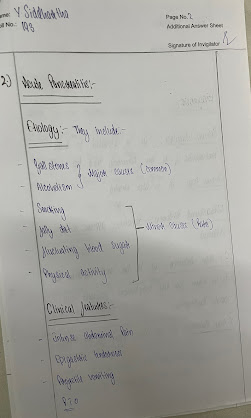 Name: Y Siddhartha
Roll No.: 193
Page No. 2
Additional Answer Sheet
Signature of Invigilator
2)
Acute Pancreatitis:-
Etiology:- They include:-
- Gall stones
- Alcoholism
Major causes (Common)
- Smoking
- Oily diet
- Fluctuating blood sugar
- Physical activity
Minor causes (Rare)
Clinical features:-
- Intense abdominal pain
- Epigastric tenderness
- Projectile vomiting
P.T.O